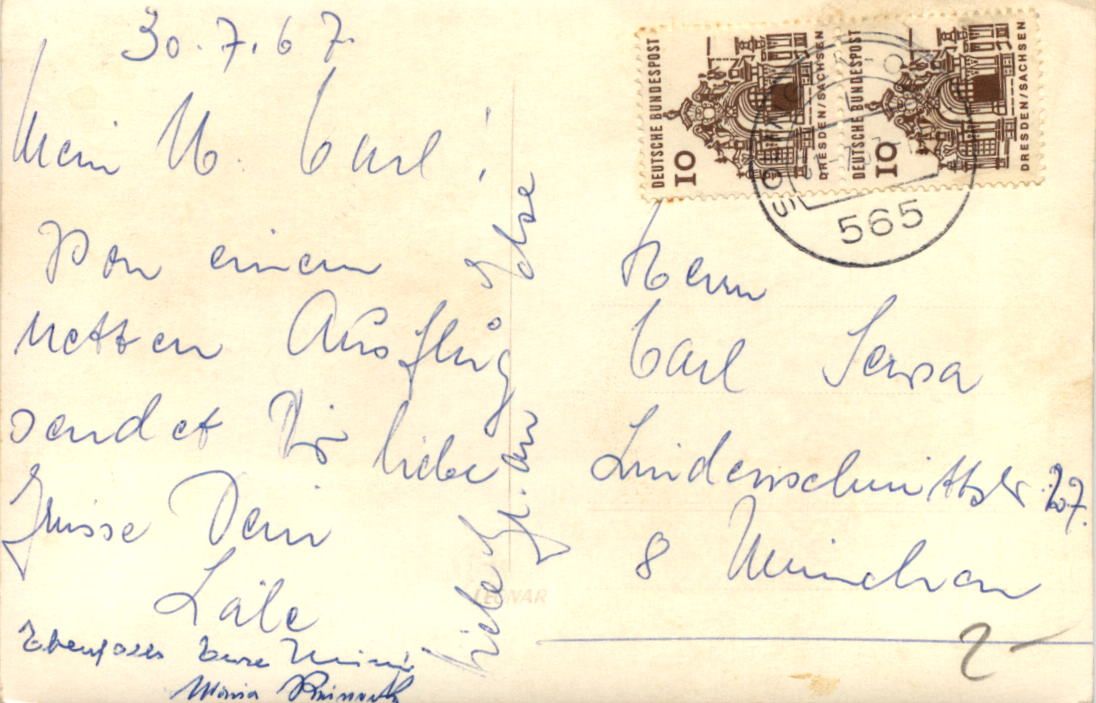 30.7.67
Mein lb. Carl!
Von einem
netten Ausflug
sendet Dir liebe
Grüsse Dein
Lälc
Ebenfalls Eure Mimi
Maria
liebe Gr. an Ilse
DEUTSCHE BUNDESPOST
10
DRESDEN/SACHSEN
DEUTSCHE BUNDESPOST
10
DRESDEN/SACHSEN
565
Herrn
Carl
Lindenschmittstr. 27.
8 München
2-